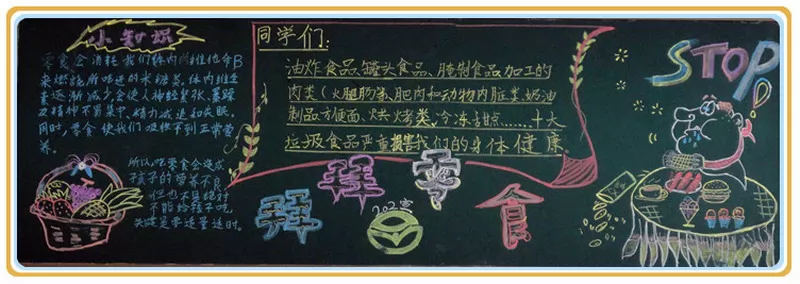 小知识
零食会消耗我们体内的维他命B
来燃烧所吃进的米糖类,体内维生
素逐渐减少会使人神经紧张、暴躁
及精神不易集中、精力减退和失眠。
同时,零食使我们吸收不到正常营
养。
所以吃零食会造成
孩子的营养不良,
但也不是绝对
不能给孩子吃,
关键是要适量适时。
同学们:
油炸食品、罐头食品、腌制食品、加工的
肉类(火腿肠)类、肥肉和动物内脏类、奶油
制品、方便面、烘烤类、冷冻甜点……十大
垃圾食品严重损害我们的身体健康。
拜拜零食
202室
STOP